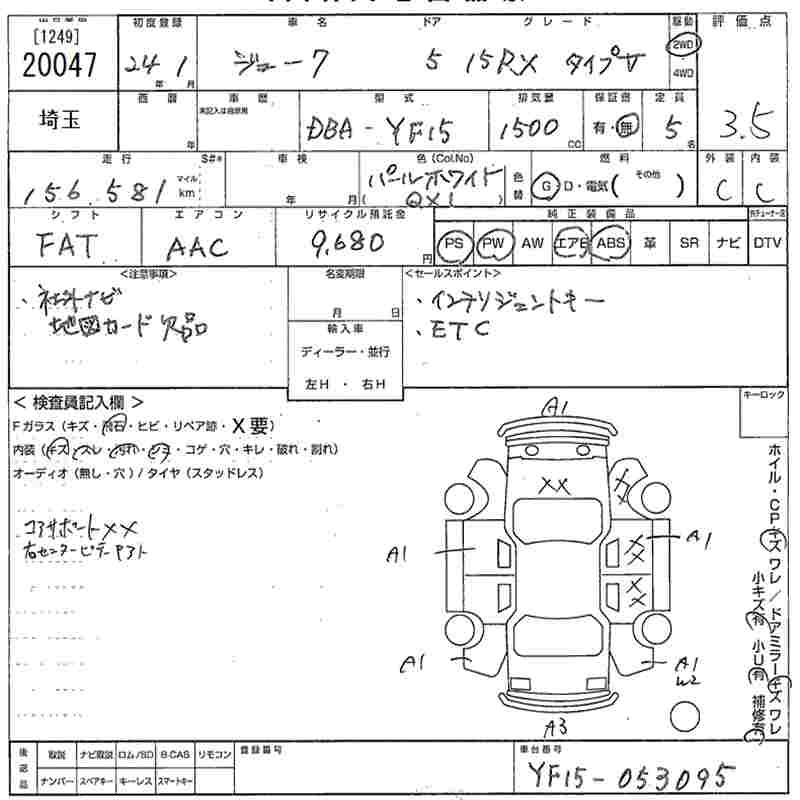 [1249]
20047
初度登録
車名
ドア
グレード
駆動
評価点
24年 1月
ジューク
5
15RX タイプV
2WD
4WD
3.5
埼玉
西暦
年
車歴
未記入は自家用
型式
排気量
保証書
定員
DBA-YF15
1500
CC
有・無
5
名
走行
S#*
車検
色(Col.No)
燃料
外装
内装
156,581
マイル
km
年
月
パールホワイト
( QX1 )
色替
G D・電気( その他 )
C
C
シフト
エアコン
リサイクル預託金
純正装備品
FAT
AAC
9,680
円
PS
PW
AW
エアB
ABS
革
SR
ナビ
DTV
<注意事項>
名変期限
<セールスポイント>
・社外ナビ
地図カード欠品
月
日
・インテリジェントキー
・ETC
輸入車
ディーラー・並行
左H ・ 右H
< 検査員記入欄 >
キーロック
Fガラス (キズ・飛石・ヒビ・リペア跡・X要)
内装 (キズ・スレ・汚れ・コゲ・穴・キレ・破れ・割れ)
オーディオ (無し・穴) / タイヤ (スタッドレス)
コアサポートXX
A1
XX
XX
A1
A1
XX
XX
A1
A1
W2
A3
ホイル・CPキズ ワレ / ドアミラーキズ ワレ
小キズ有 小U有 補修有
後返品
取説
ナビ取説
ロム/SD
B-CAS
リモコン
ナンバー
スペアキー
キーレス
スマートキー
登録番号
車台番号
YF15-053095